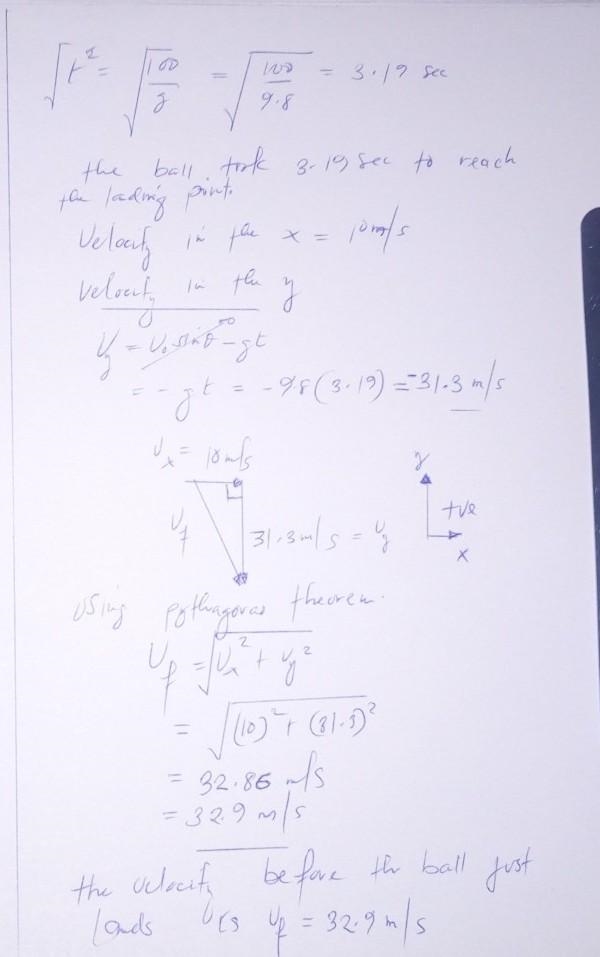 √t² = √100/g = √100/9.8 = 3.19 sec
the ball took 3.19 sec to reach
the lading point.
Velocity in the x = 10m/s
velocity in the y
Vy = V₀ sinθ⁰ - gt
= - gt = -9.8(3.19) = -31.3 m/s
Ux = 10m/s
y
Uf
31.3m/s = Uy
+ve
x
Using pythagoras theorem.
Uf = √Ux² + Uy²
= √(10)² + (31.3)²
= 32.86 m/s
= 32.9 m/s
the velocity before the ball just
lands is Uf = 32.9 m/s